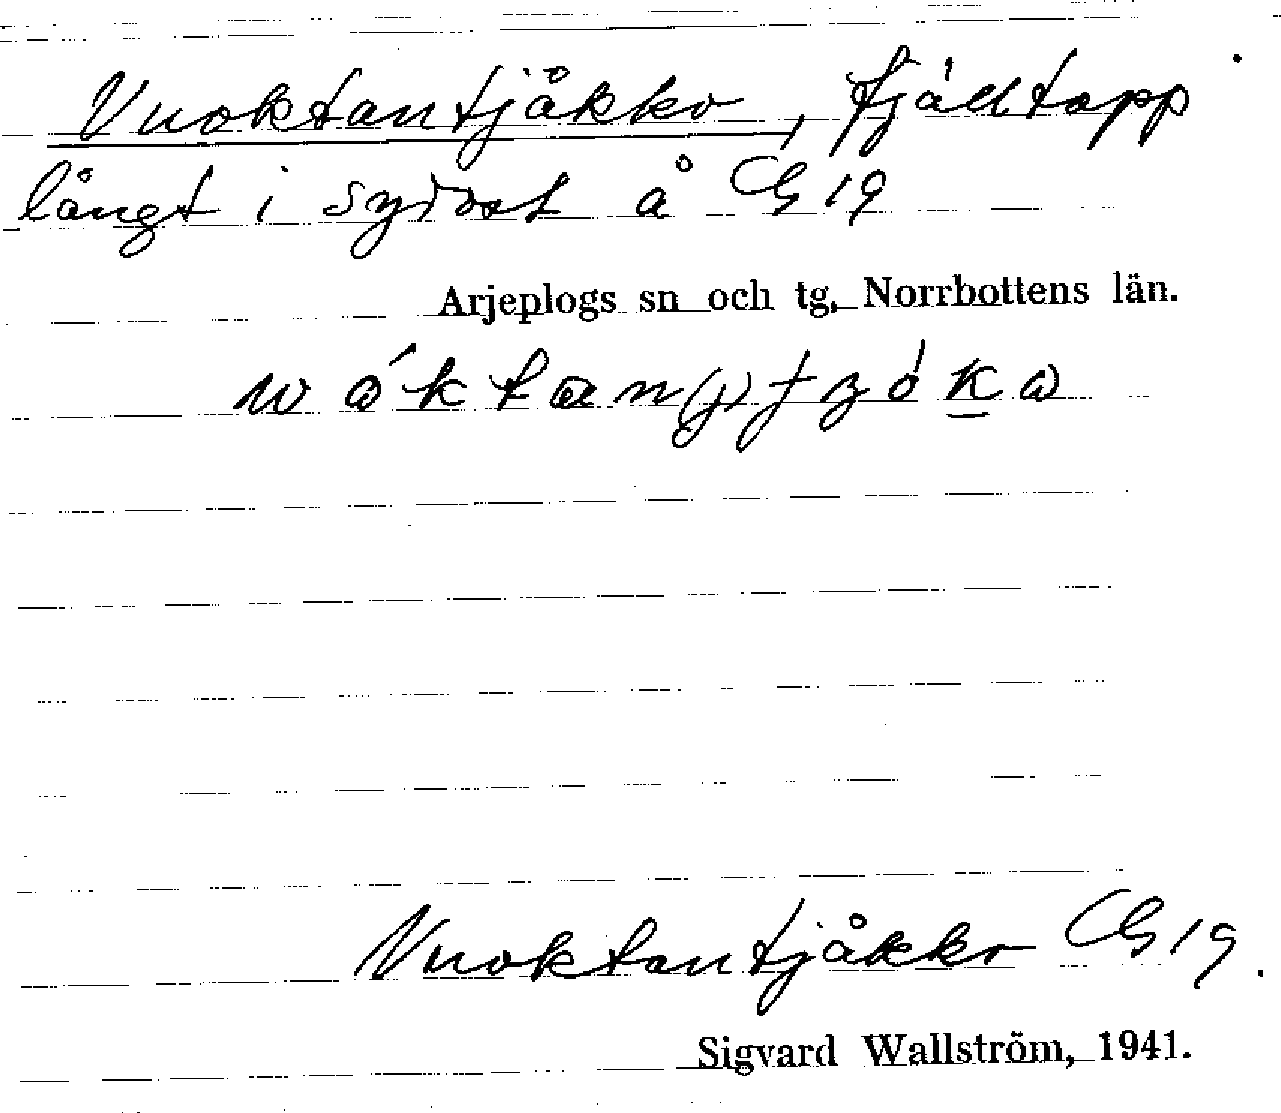 Vuoktantjåkko, fjälltopp
långt i sydost å G 19
Arjeplogs sn och tg, Norrbottens län.
Vuoktantjåkko G 19.
Sigvard Wallström, 1941.